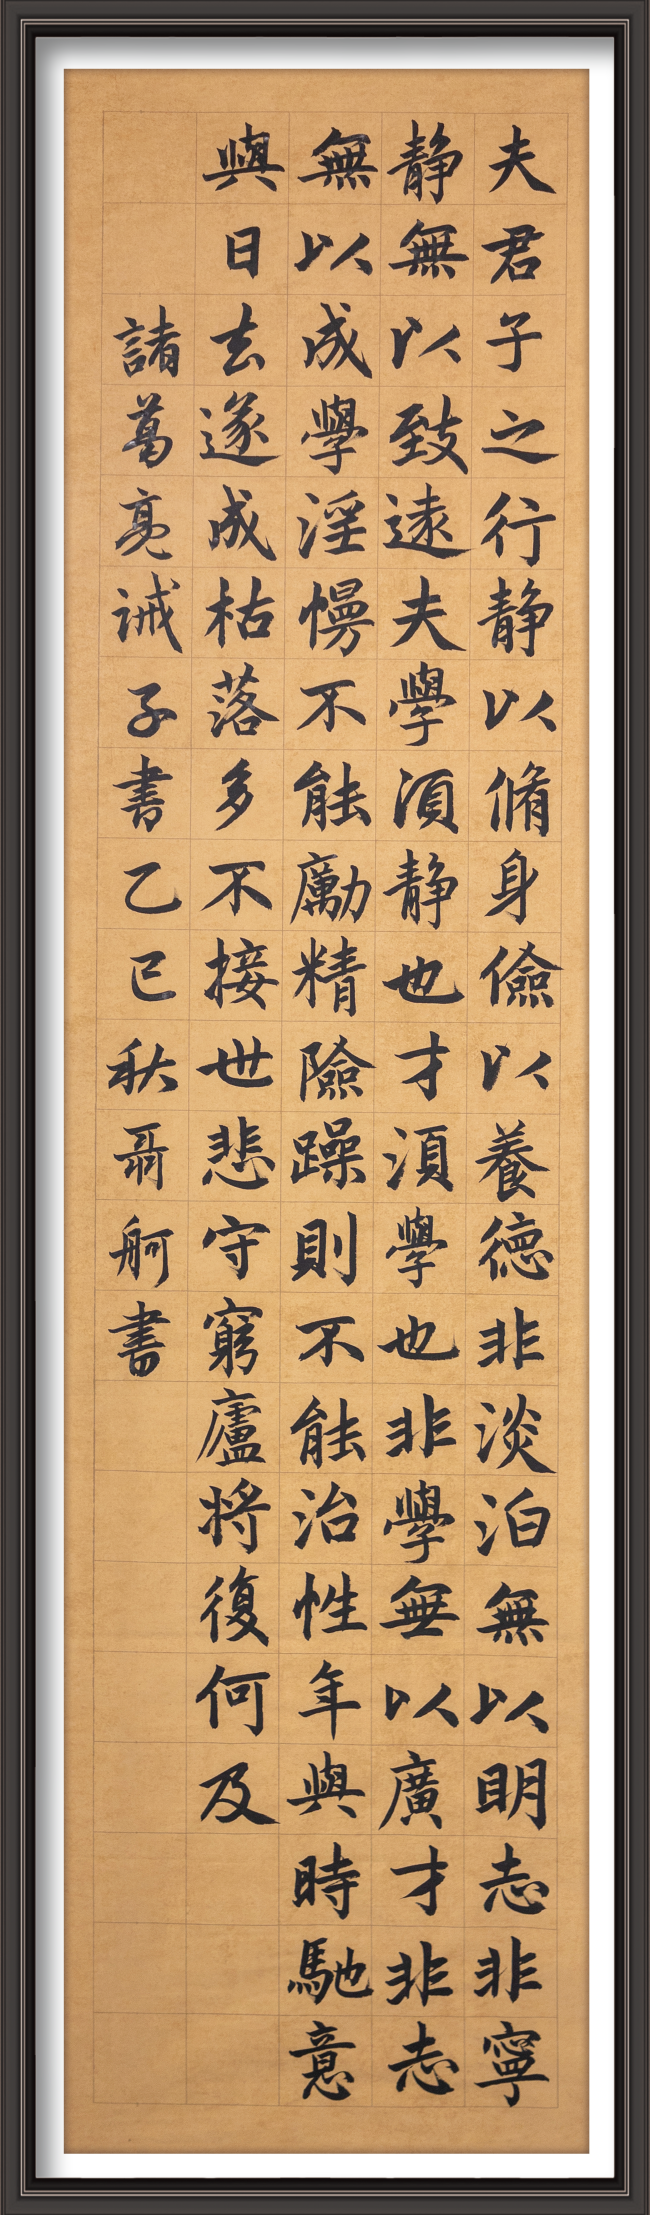 夫君子之行静以脩身儉以養德非淡泊無以明志非寧
静無以致遠夫學須静也才須學也非學無以廣才非志
無以成學淫慢不能勵精險躁則不能治性年與時馳意
與日去遂成枯落多不接世悲守窮廬将復何及
諸葛亮诫子書乙巳秋聶舸書